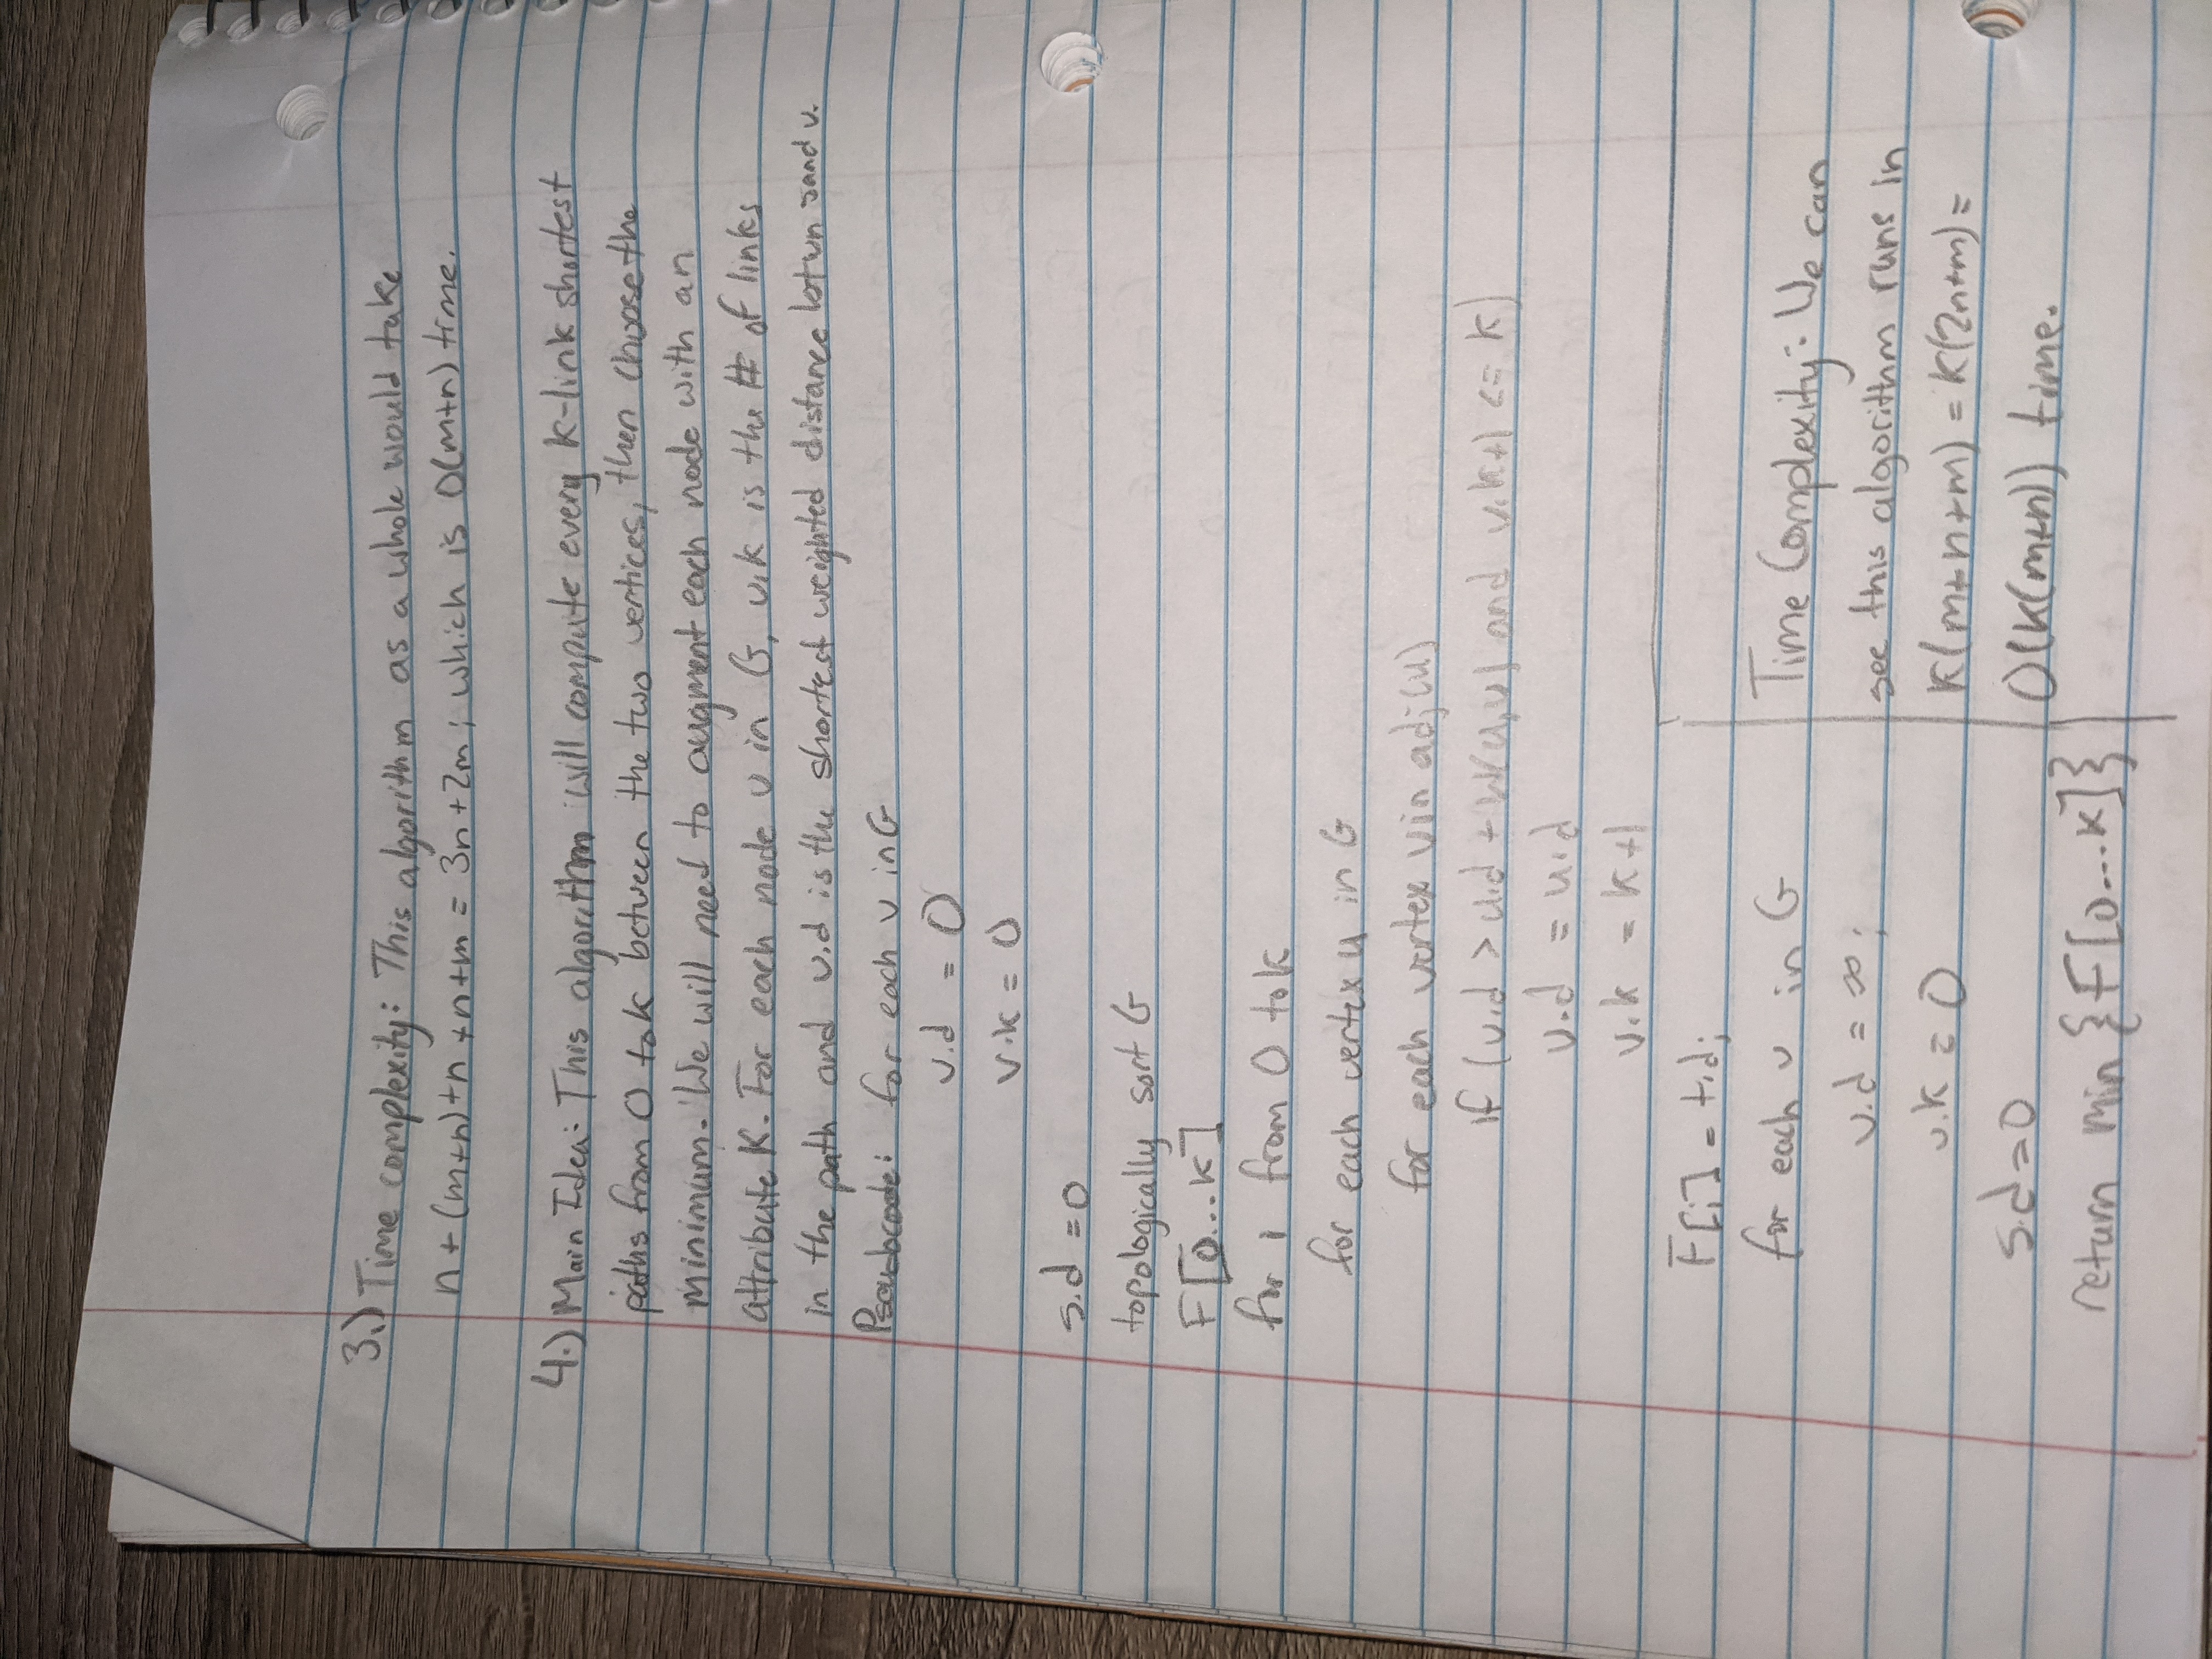 3.) Time complexity: This algorithm as a whole would take
n + (m+n)+n +n+m = 3n+2m; which is O(m+n) time.
4.) Main Idea: This algorithm will compute every k-link shortest
paths from 0 to k between the two vertices, then choose the
minimimum. We will need to augment each node with an
attribute k. For each node v in G, v.k is the # of links
in the path and v.d is the shortest weighted distance botwn s and v.
Pseudocode: for each v in G
v.d = 0
v.k = 0
s.d = 0
topologically sort G
F[0...k]
for i from 0 to k
for each vertex u in G
for each vertex v in adj(u)
if (v.d > u.d + w(u,v) and v.k+1 <= k)
v.d = u.d
v.k = k+1
F[i] = t.d;
for each v in G
v.d = ∞;
v.k = 0
s.d = 0
return min {F[0...k]}
Time Complexity: We can
see this algorithm runs in
k(m+n+m) = k(2n+m) =
O(k(m+n)) time.